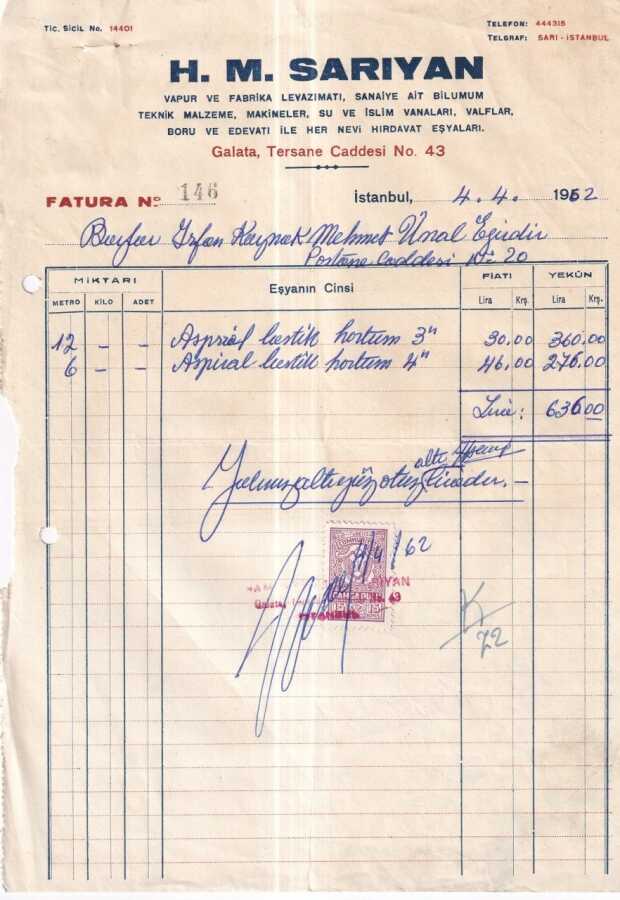 Tic. Sicil No. 14401
TELEFON: 444315
TELGRAF: SARI - İSTANBUL
H. M. SARIYAN
VAPUR VE FABRİKA LEVAZIMATI, SANAİYE AİT BİLUMUM
TEKNİK MALZEME, MAKİNELER, SU VE İSLİM VANALARI, VALFLAR,
BORU VE EDEVATI İLE HER NEVİ HIRDAVAT EŞYALARI.
Galata, Tersane Caddesi No. 43
FATURA Nº 146
İstanbul, 4.4. 1962
İrfan Kaynak Mehmet Ünal Eğirdir
Postane Caddesi No: 20
MİKTARI Eşyanın Cinsi FİATI YEKÛN
METRO KİLO ADET Lira Krş. Lira Krş.
12 - - Aspiral lastik hortum 3" 30.00 360.00
6 - - Aspiral lastik hortum 4" 46.00 276.00
Lira: 636.00
altı
Yalnız altıyüzotuz liradır. -
4/4/62
SARIYAN
Galata, No. 43
İSTANBUL
15 15
72